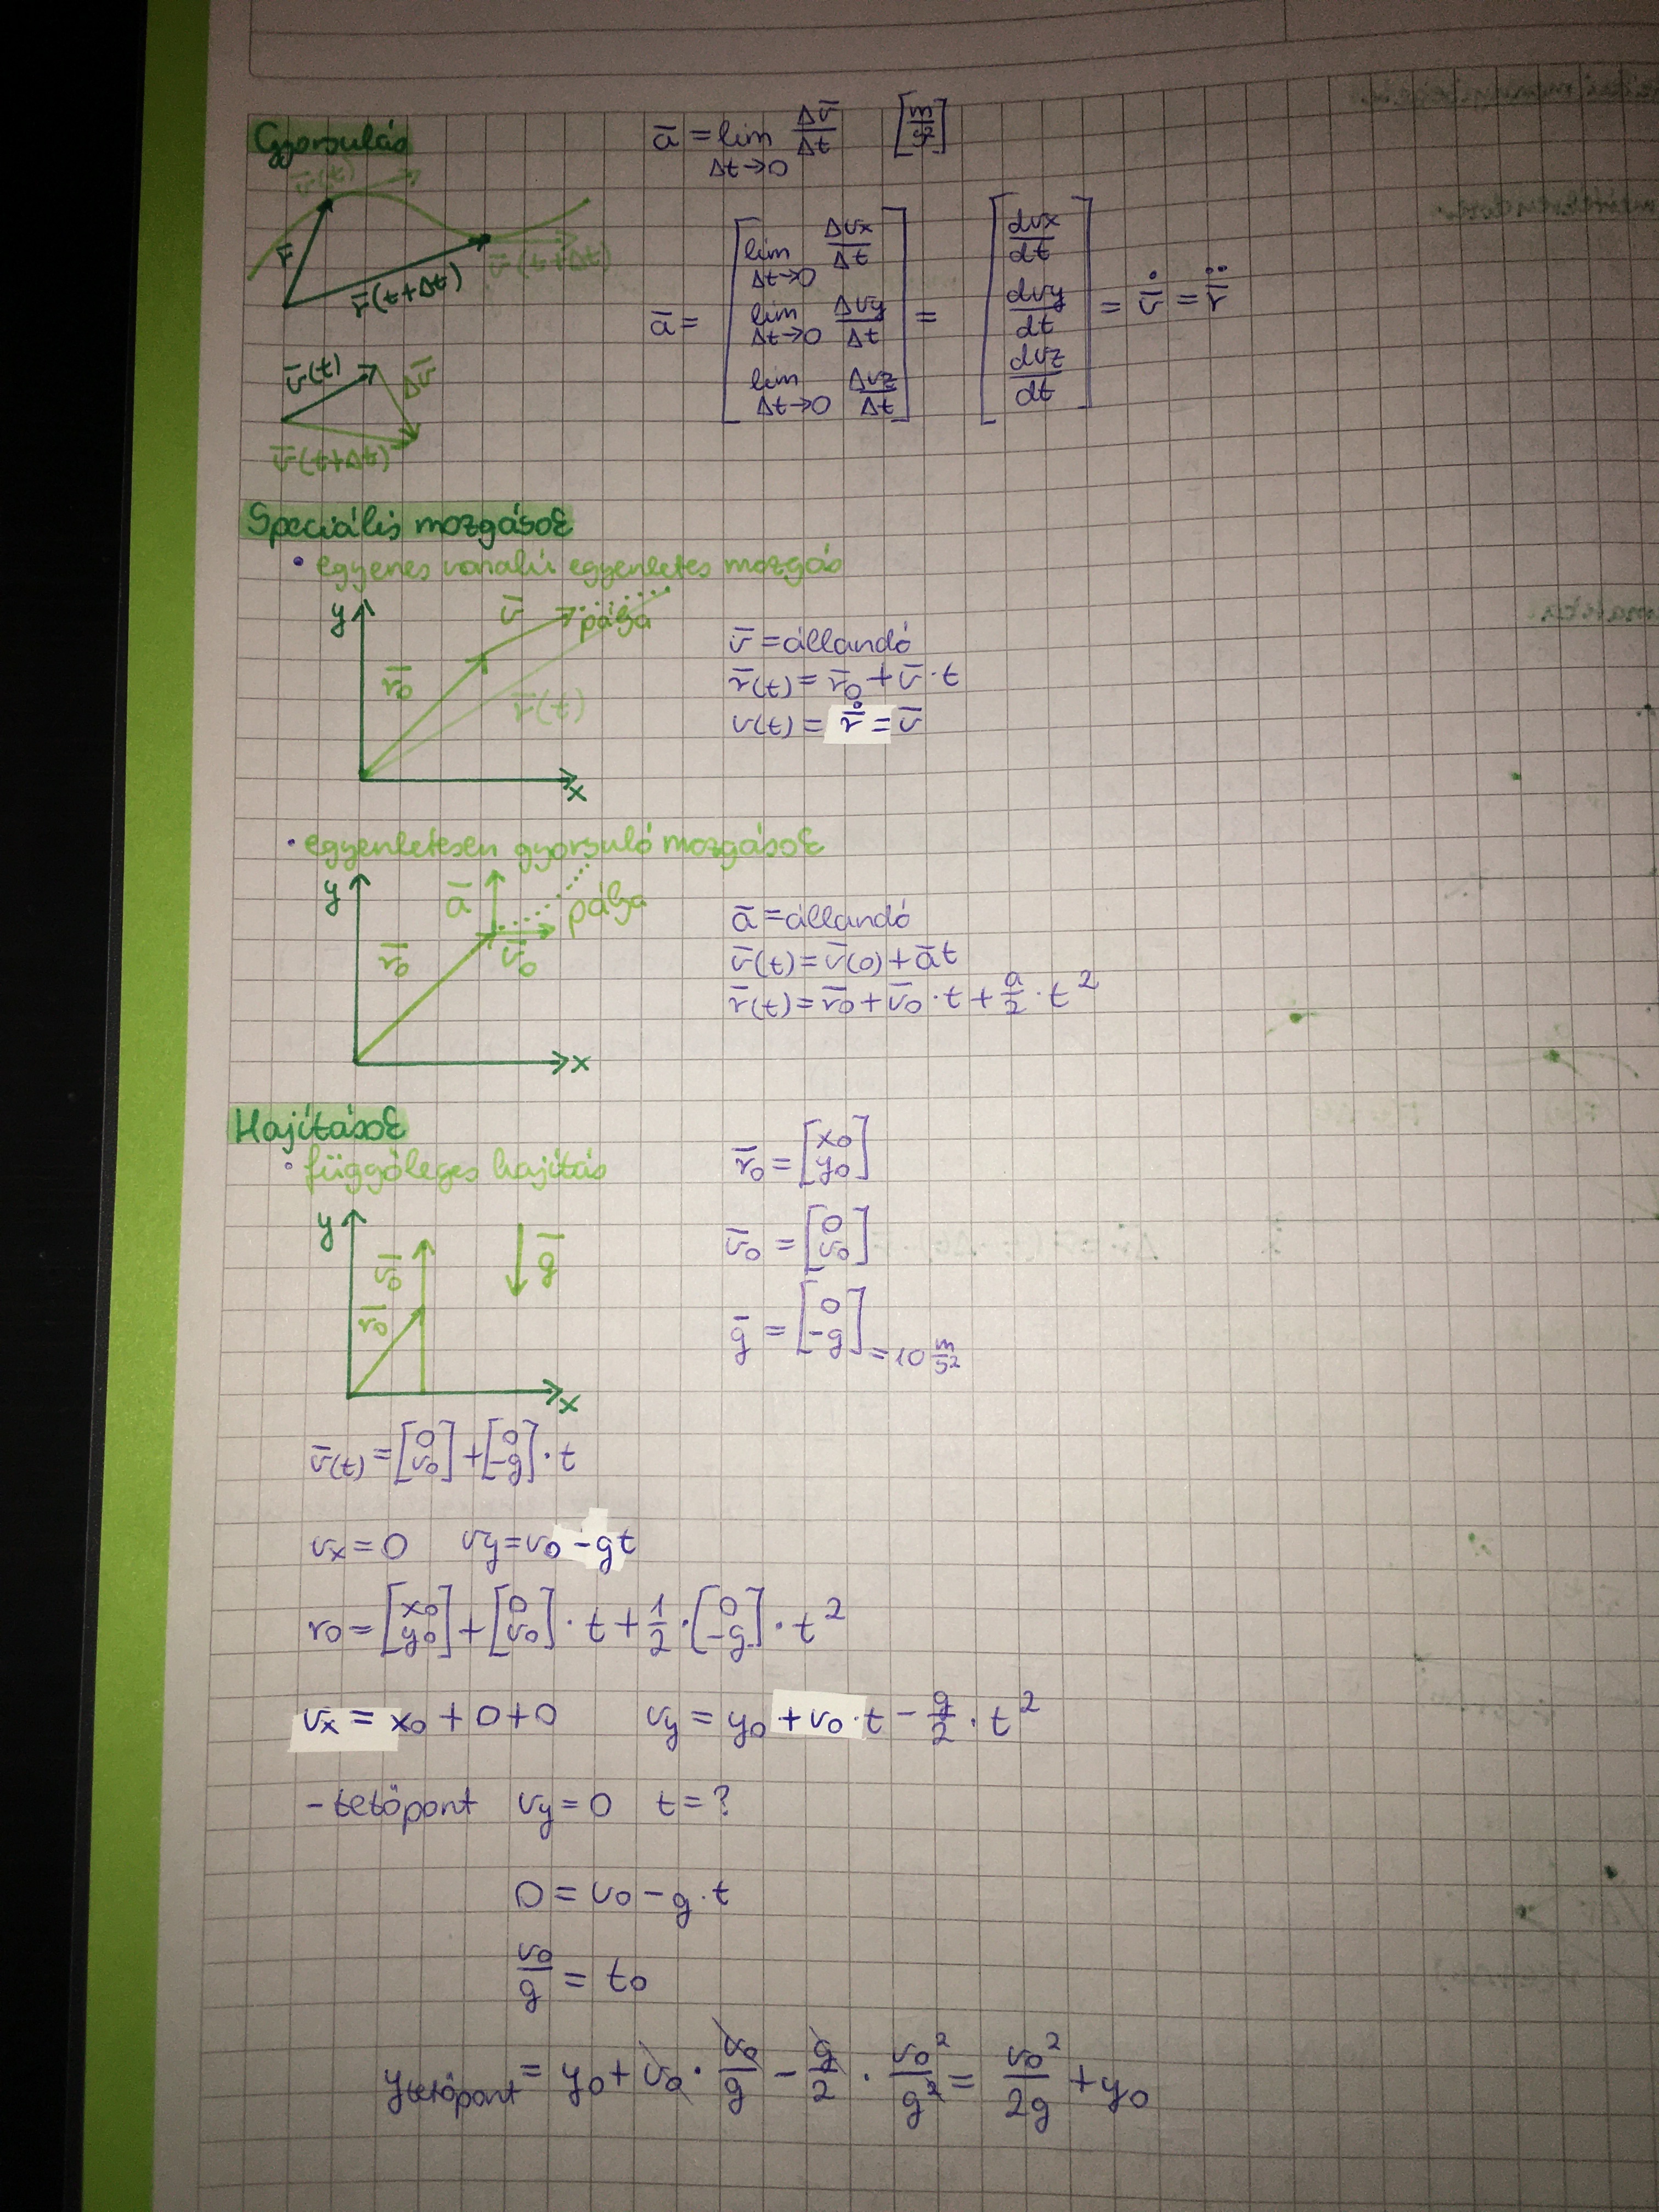 Gyorsulás
v̅(t)
r̅
r̅(t+Δt)
v̅(t+Δt)
v̅(t)
Δv̅
v̅(t+Δt)
a̅ = lim Δt→0 Δv̅/Δt [m/s²]
a̅ = [lim Δt→0 Δvx/Δt
lim Δt→0 Δvy/Δt
lim Δt→0 Δvz/Δt] = [dvx/dt
dvy/dt
dvz/dt] = v̅̇ = r̅̈
Speciális mozgások
• egyenes vonalú egyenletes mozgás
y
v̅
pálya
r̅₀
r̅(t)
x
v̅ = állandó
r̅(t) = r̅₀ + v̅ · t
v(t) = r̅̇ = v̅
• egyenletesen gyorsuló mozgások
y
a̅
pálya
r̅₀
v̅₀
x
a̅ = állandó
v̅(t) = v̅(0) + a̅t
r̅(t) = r̅₀ + v̅₀ · t + a/2 · t²
Hajítások
• függőleges hajítás
y
v̅₀
g̅
r̅₀
x
r̅₀ = [x₀
y₀]
v̅₀ = [0
v₀]
g̅ = [0
-g] = 10 m/s²
v̅(t) = [0 v₀] + [0 -g] · t
vx = 0 vy = v₀ - gt
r₀ = [x₀ y₀] + [0 v₀] · t + 1/2 · [0 -g] · t²
vx = x₀ + 0 + 0 vy = y₀ + v₀ · t - g/2 · t²
- tetőpont vy = 0 t = ?
0 = v₀ - g · t
v₀/g = t₀
ytetőpont = y₀ + v₀ · v₀/g - g/2 · v₀²/g² = v₀²/2g + y₀